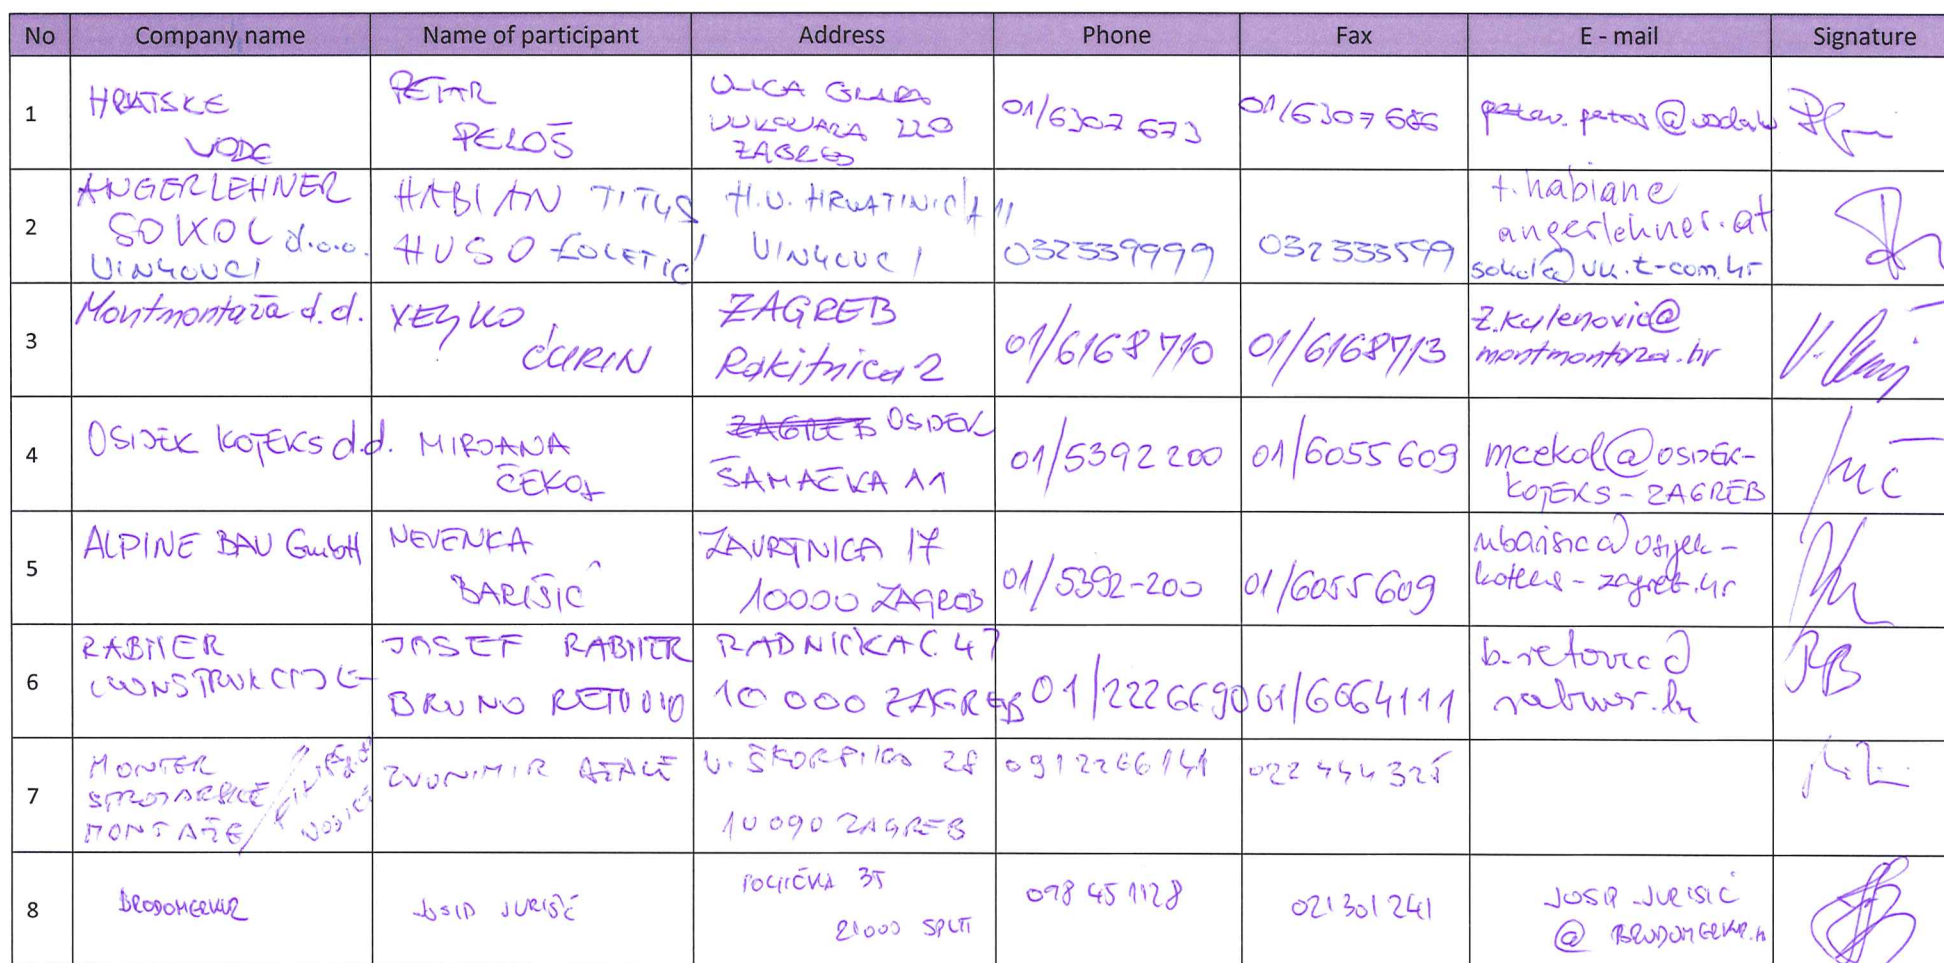 No Company name Name of participant Address Phone Fax E - mail Signature
1 HRVATSKE VODE PETAR PELOŠ ULICA GRADA VUKOVARA 220 ZAGREB 01/6307 673 01/6307 686
2 ANGERLEHNER SOKOL d.o.o. VINKOVCI HABIAN TITUS HUSO H.V. HRVATINIĆA 11 VINKOVCI 032339999 032333599 t.habiane angerlehner.at sokol@vk.t-com.hr
3 Montmontaža d.d. VELJKO ĆURIN ZAGREB Rakitnica 2 01/6168710 01/6168713 z.kulenovic@ montmontaza.hr
4 OSIJEK KOTEKS d.d. MIRJANA ČEKOL OSIJEK ŠAMAČKA 11 01/5392 200 01/6055 609 mcekol@OSIJEK- KOTEKS - ZAGREB
5 ALPINE BAU GmbH NEVENKA BARIŠIĆ ZAVRTNICA 17 10000 ZAGREB 01/5392-200 01/6055 609 nbarisic@osijek- koteks - zagreb.hr
6 KONSTRUKCIJE JOSEF BRUNO RADNIČKA C. 47 10 000 ZAGREB 01/2226690 01/6064111
7 MONTER STROJARSKE MONTAŽE ZVONIMIR V. ŠKORPIKA 28 10090 ZAGREB 0912266141 022 444 325
8 BRODOMERKUR JOSIP JURIŠIĆ POLJIČKA 35 21000 SPLIT 098 45 1128 021301241 JOSIP.JURISIC @ BRODOMERKUR.h